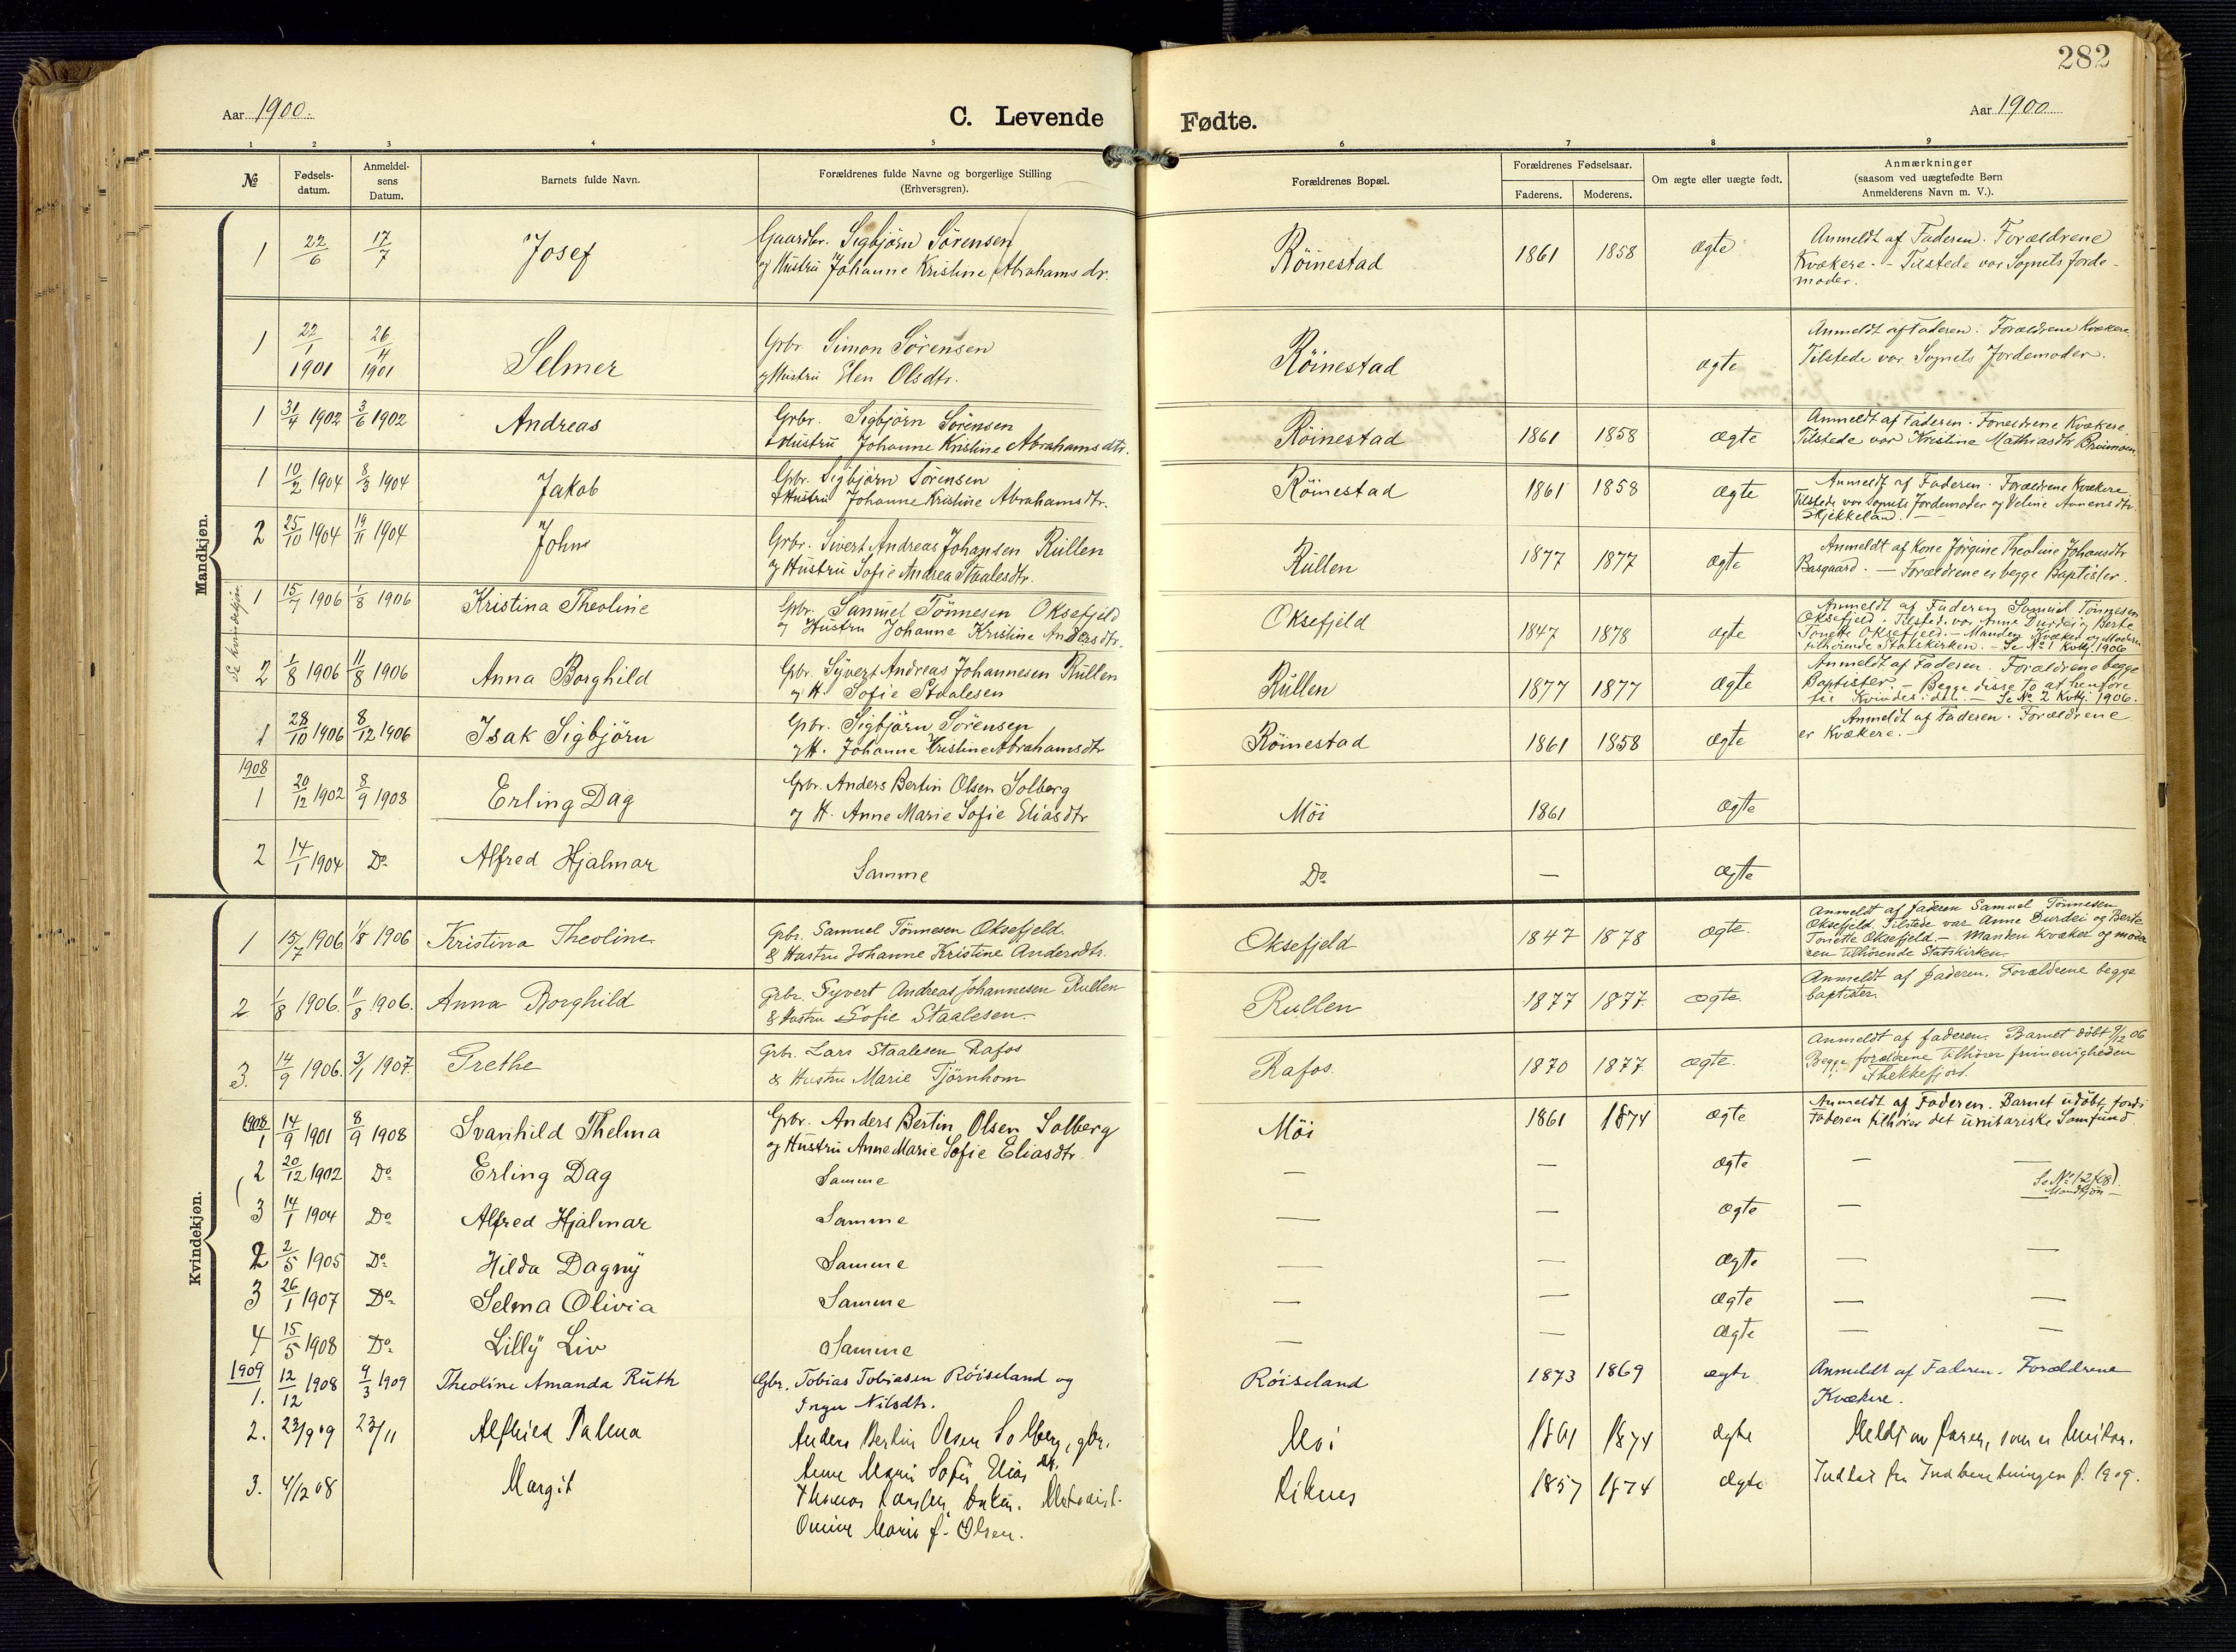 282
Aar 1900.
C. Levende Fødte.
Aar 1900
1 2 3 4 5 6 7 8 9
№
Fødsels-
datum.
Anmeldel-
sens
Datum.
Barnets fulde Navn.
Forældrenes fulde Navne og borgerlige Stilling
(Erhversgren).
Forældrenes Bopæl.
Forældrenes Fødselsaar.
Faderens.
Moderens.
Om ægte eller uægte født.
Anmærkninger
(saasom ved uægtefødte Børn
Anmelderens Navn m. V.).
Mandkjøn.
1 22/6 17/7 Josef Gaardbr. Sigbjörn Sörensen Röinestad 1861 1858 ægte Anmeldt af Faderen. Forældrene
og Hustru Johanne Kristine Abrahamsdr. Kvækere. - Tilstede var Sognets Jorde-
moder.
1 22/1 1901 26/4 1901 Selmer Grbr. Simon Sörensen Röinestad ægte Anmeldt af Faderen. Forældrene Kvækere
og Hustru Elen Olsdtr. Tilstede var Sognets Jordemoder.
1 31/4 1902 3/6 1902 Andreas Grbr. Sigbjörn Sörensen Röinestad 1861 1858 ægte Anmeldt af Faderen. Forældrene Kvækere.
& Hustru Johanne Kristine Abrahamsdtr. Tilstede var Kristine Mathiasdtr
1 10/2 1904 8/3 1904 Jakob Grbr. Sigbjörn Sörensen Röinestad 1861 1858 ægte Anmeldt af Faderen. Forældrene Kvækere
& Hustru Johanne Kristine Abrahamsdtr. Tilstede var Sognets Jordemoder og Veline Aanensdtr.
Skjekkeland. —
2 25/10 1904 19/11 1904 Johns Grbr. Sivert Andreas Johansen Rullen Rullen 1877 1877 ægte Anmeldt af Kone Jörgine Theoline Johansdtr
og Hustru Sofie Andrea Staalesdtr. Basgaard. — Forældrene er begge Baptister.
Se Kvindekjön
1 15/7 1906 1/8 1906 Kristina Theoline Grbr. Samuel Tönnesen Oksefjeld Oksefjeld 1847 1878 ægte Anmeldt af Faderen Samuel Tönnesen
og Hustru Johanne Kristine Andersdtr. Oksefjeld. Tilstede var Anne Durdei og Berte
Tonette Oksefjeld. — Manden Kvæker og Moderen
tilhörende Statskirken. — Se № 1 Kvkj. 1906
2 1/8 1906 11/8 1906 Anna Borghild Grbr. Syvert Andreas Johannesen Rullen Rullen 1877 1877 ægte Anmeldt af Faderen. Forældrene begge
og H. Sofie Staalesen Baptister. — Begge disse to at henföre
til Kvindesiden. — Se № 2 Kvkj. 1906.
1 28/10 1906 8/12 1906 Isak Sigbjörn Grbr. Sigbjörn Sörensen Röinestad 1861 1858 ægte Anmeldt af Faderen. Forældrene
og H. Johanne Kristine Abrahamsdtr er Kvækere. —
1908
1 20/12 1902 8/9 1908 Erling Dag Grbr. Anders Bertin Olsen Solberg Möi 1861 ægte
og H. Anne Marie Sofie Eliasdtr
2 14/1 1904 Do Alfred Hjalmar Samme Do — ægte
Kvindekjøn.
1 15/7 1906 1/8 1906 Kristina Theoline Grbr. Samuel Tönnesen Oksefjeld Oksefjeld 1847 1878 ægte. Anmeldt af faderen Samuel Tönnesen
& Hustru Johanne Kristine Andersdtr. Oksefjeld. Tilstede var Anne Durdei og Berte
Tonette Oksefjeld. — Manden Kvæker og mode-
ren tilhörende Statskirken.
2 1/8 1906. 11/8 1906. Anna Borghild Grbr. Syvert Andreas Johannesen Rullen Rullen 1877 1877 ægte. Anmeldt af faderen. Forældrene begge
& Hustru Sofie Staalesen. baptister.
3. 14/9 1906. 3/1 1907. Grethe Grbr. Lars Staalesen Rafos Rafos. 1870 1877 ægte. Anmeldt af faderen. Barnet döbt 9/12 06
& Hustru Marie Tjörnhom Begge forældrene tilhörer frimenigheden
Flekkefjord.
1908
1 14/9 1901 8/9 1908 Svanhild Thelma Grbr. Anders Bertin Olsen Solberg Möi 1861 1874 ægte Anmeldt af Faderen. Barnet udöbt, fordi
og Hustru Anne Marie Sofie Eliasdtr. Faderen tilhører det unitariske Samfund.
2 20/12 1902 Do Erling Dag Samme — — ægte — — Se № 1-2 (08).
Mandkjön —
3 14/1 1904 Do Alfred Hjalmar Samme — — ægte —
2 2/5 1905 Do Hilda Dagny Samme — — ægte — —
3 26/1 1907 Do Selma Olivia Samme — — ægte — —
4 15/5 1908 Do Lilly Liv Samme — — ægte — —
1909
1. 12/12 1908 9/3 1909 Theoline Amanda Ruth Gbr. Tobias Tobiasen Röiseland og Röiseland 1873 1869 ægte Anmeldt af Faderen. Forældrene
Inger Nilsdtr. Kvækere.
2. 23/9 09 23/11 Alfhild Palma Anders Bertin Olsen Solberg, gbr. Moi 1861 1874 ægte Meldt av faren, som er Unitar.
Anne Marie Sofie Elias dtr.
3. 4/12 08 Margit Thomas Larsen, Metodist. 1857 1874 ægte Indtat fra Indberetningen f. 1909.
Marie f. Olsen.